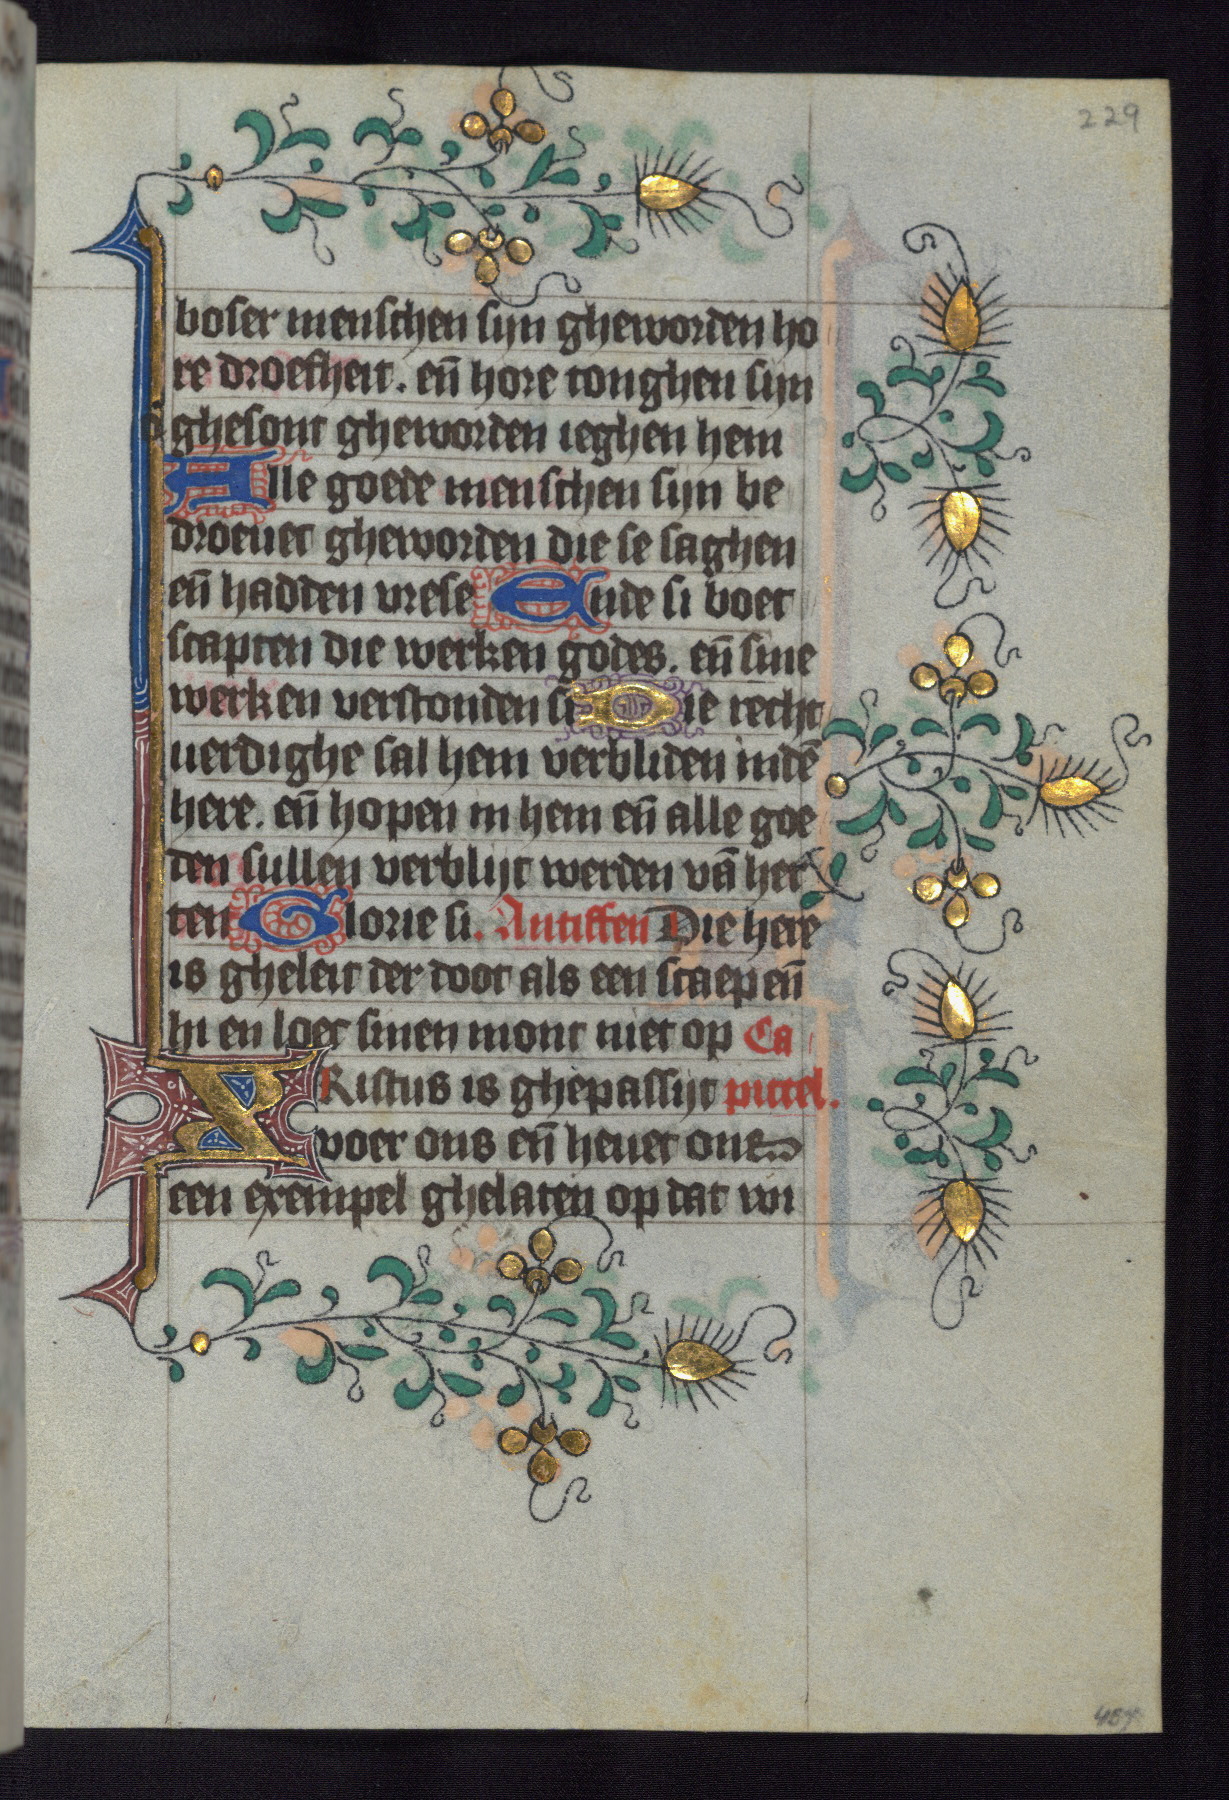 229
boser menschen sijn gheworden ho
re droefheit. eñ hore tonghen sijn
ghesont gheworden ieghen hem
Alle goede menschen sijn be
droeuet gheworden die se saghen
eñ hadden vrese Ende si boet
scapten die werken godes. eñ sine
werken verstonden si Die recht
uerdighe sal hem verbliden indē
here. eñ hopen in hem eñ alle goe
den sullen verblijt werden vā her
ten Glorie si. Antiffen Die here
is gheleit der doot als een scaep eñ
hi en loec sinen mont niet op Ca
XRistus is ghepassijt pittel.
voer ons eñ heuet ons
een exempel ghelaten op dat wi